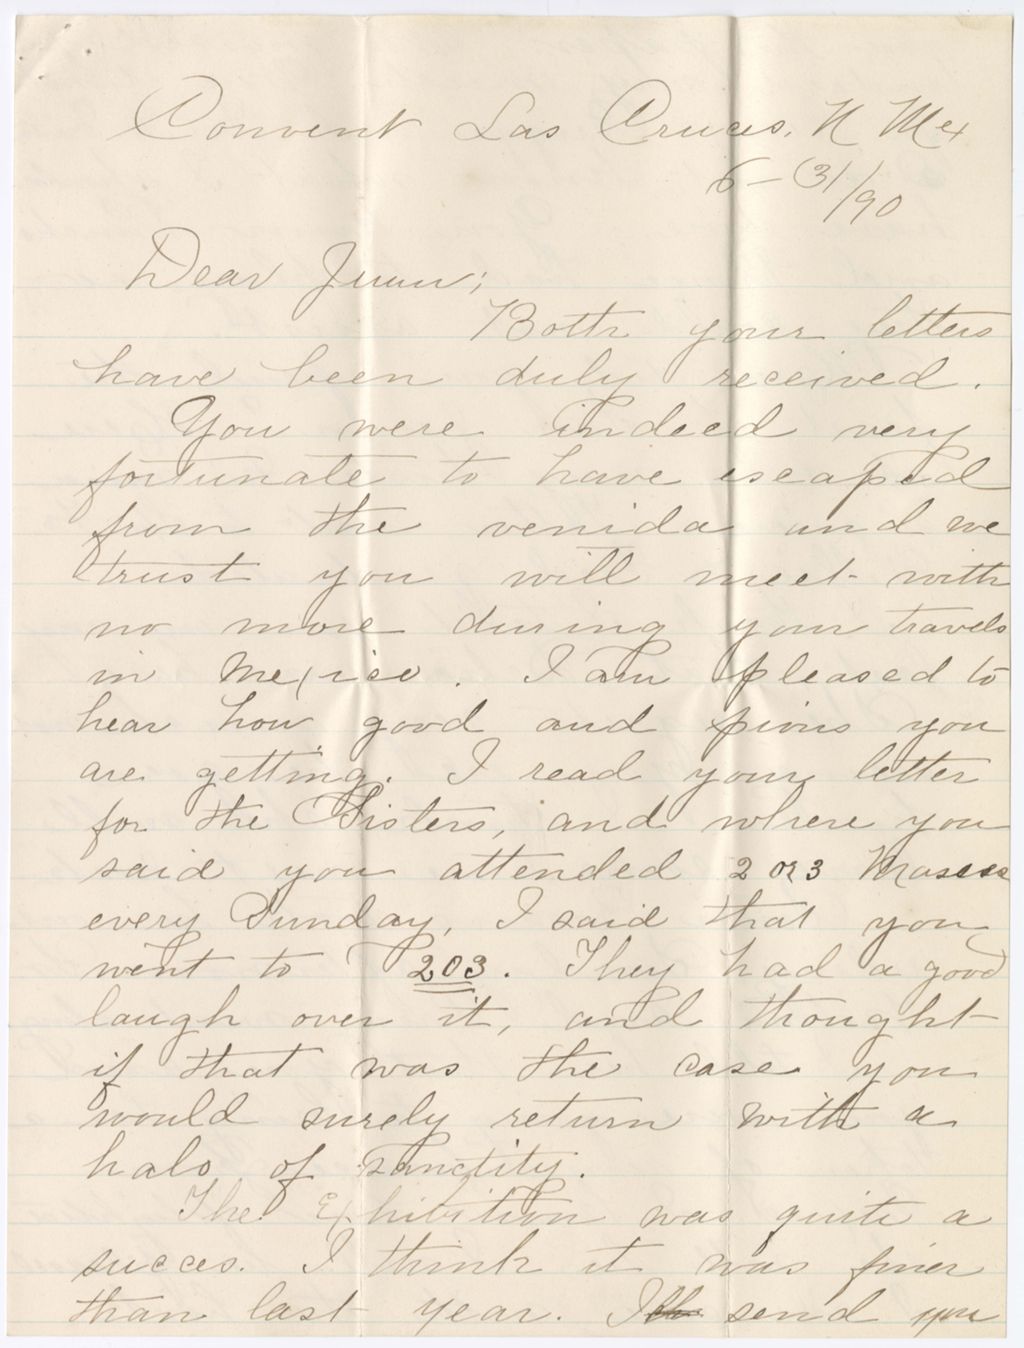 Convent Las Cruces, N Mex
6-31/90
Dear Juan;
Both your letters
have been duly received.
You were indeed very
fortunate to have escaped
from the venida and we
trust you will meet with
no more during your travels
in Mexico. I am pleased to
hear how good and pious you
are getting. I read your letter
for the Sisters, and where you
said you attended 2 or 3 Masses
every Sunday, I said that you
went to 203. They had a good
laugh over it, and thought
if that was the case you
would surely return with a
halo of sanctity.
The Exhibition was quite a
succes. I think it was finer
than last year. I send you